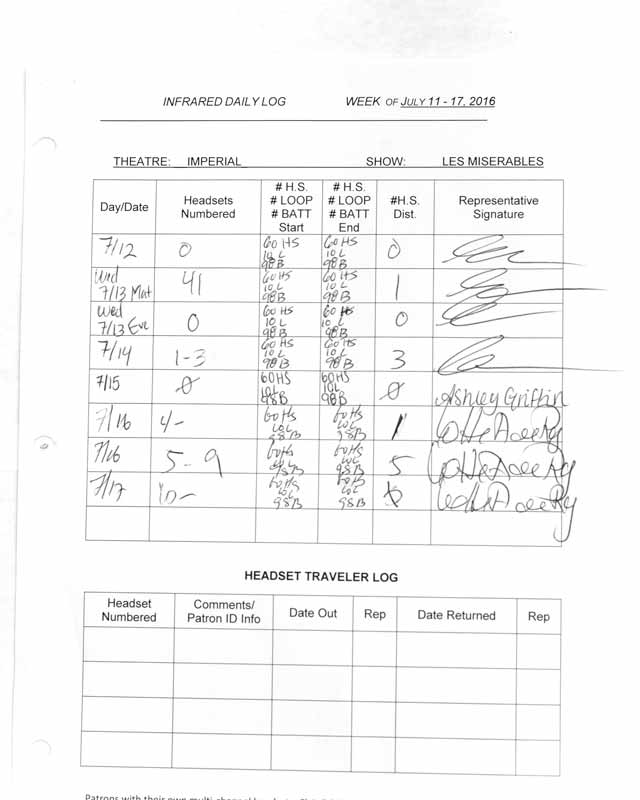 INFRARED DAILY LOG WEEK OF JULY 11 - 17, 2016
THEATRE: IMPERIAL SHOW: LES MISERABLES
Day/Date Headsets Numbered # H.S. # LOOP # BATT Start # H.S. # LOOP # BATT End #H.S. Dist. Representative Signature
7/12 0 60 HS 10 L 98B 60 HS 10 L 98B 0
Wed 7/13 Mat 41 60 HS 10 L 98B 60 HS 10 L 98B 1
Wed 7/13 Eve 0 60 HS 10 L 98B 60 HS 10 L 98B 0
7/14 1-3 60 HS 10 L 98B 60 HS 10 L 98B 3
7/15 0 60HS 10L 98B 60HS 10L 98B 0 Ashley Griffin
7/16 4- 60HS 10L 98B 60HS 10L 98B 1
7/16 5-9 60HS 10L 98B 60HS 10L 98B 5
7/17 10- 60HS 10L 98B 60HS 10L 98B
HEADSET TRAVELER LOG
Headset Numbered Comments/ Patron ID Info Date Out Rep Date Returned Rep